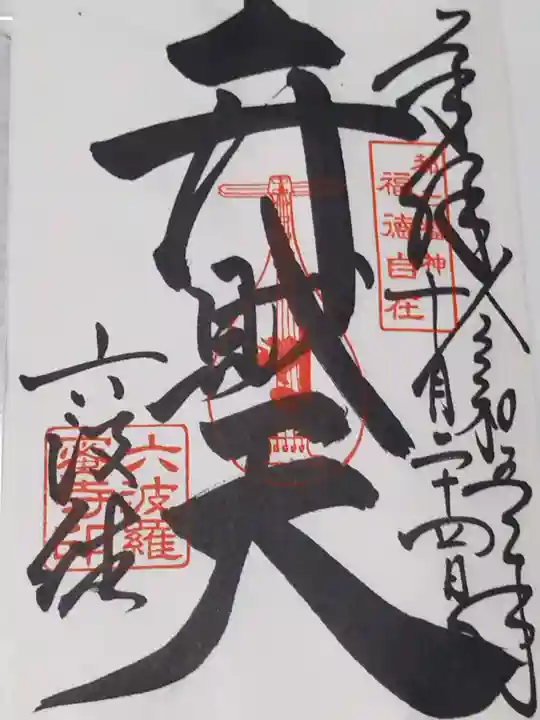 奉拝 令和五年
十月二十四日
都七福神
福徳自在
弁財天
六波羅
蜜寺印
六波羅